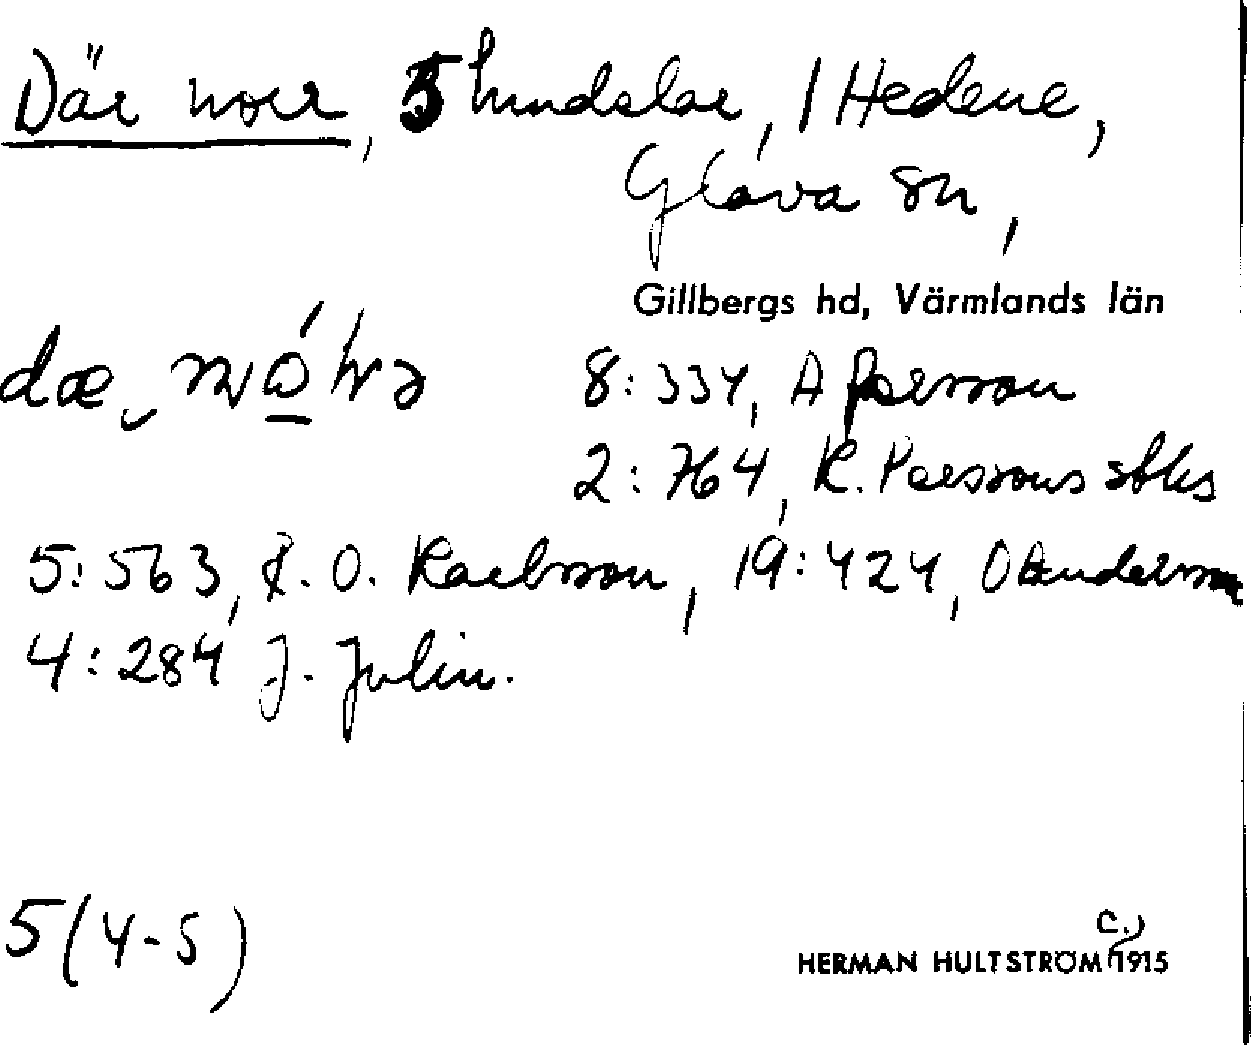 Där norr, 5 hemdelar, 1 Hedene,
Glava sn,
Gillbergs hd, Värmlands län
8:334, A Persson
2:764, K. Perssons stbhs
5:563, K. O. Karlsson, 19:424, O Andersson
4:284 J. Julin.
5(4-5)
C.)
HERMAN HULTSTRÖM 1915